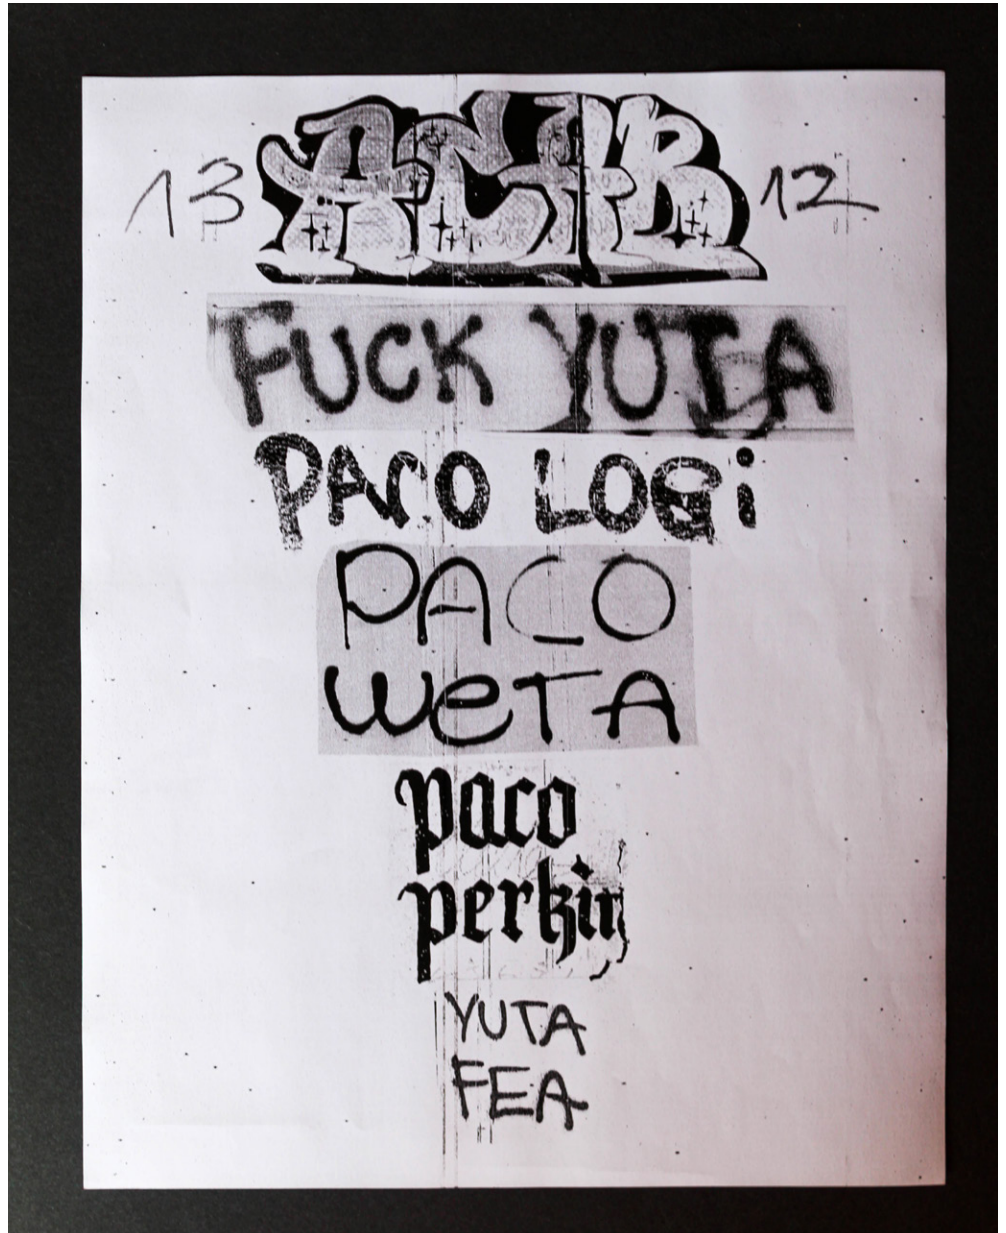 13 ACAB 12
FUCK YUTA
PACO LOGi
PACO
WeTA
paco
perkin
YUTA
FEA